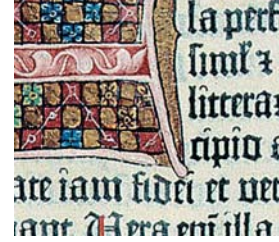 la perf
simil⁊
littera
cipio
ate iam fidei et ver
ant. Vera eni illa